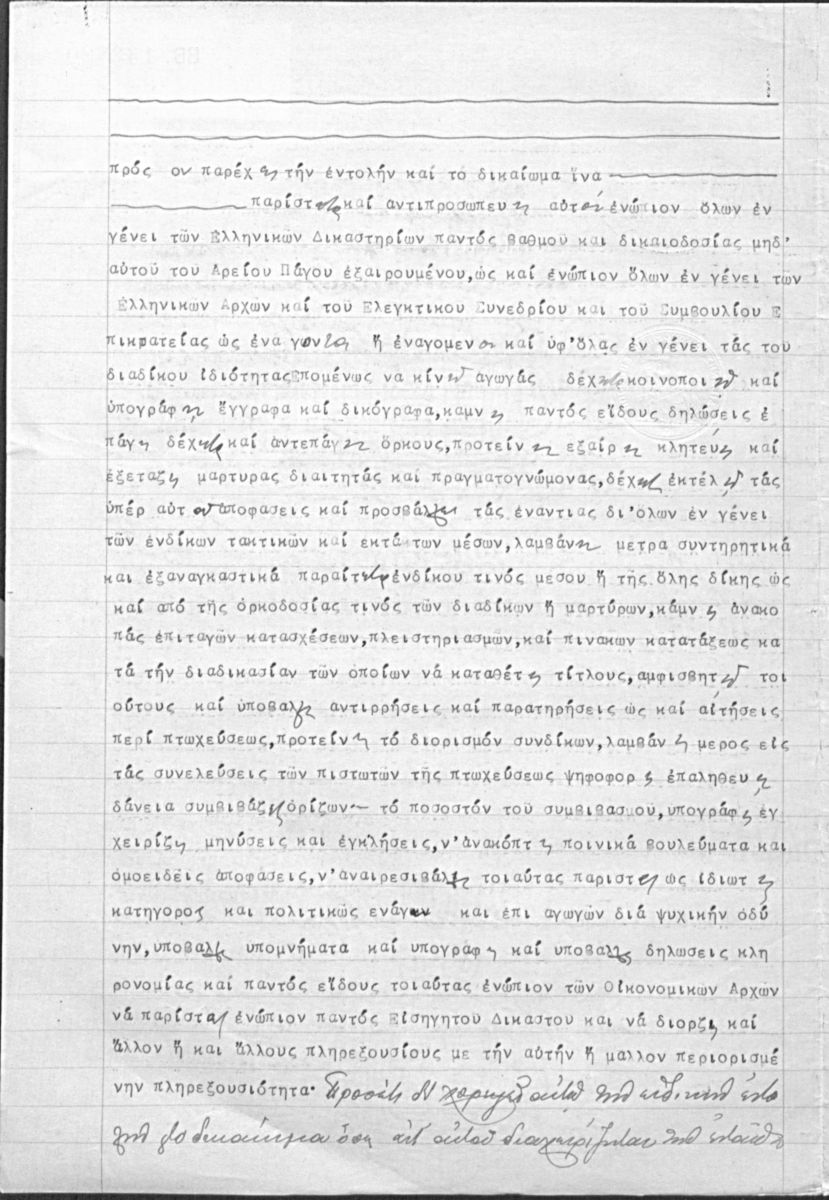 πρός ον παρέχ ει τήν ἐντολήν καί τό δικαίωμα ἵνα
παρίστ εται καί αντιπροσωπευ ει αὐτ όν ἐνώπιον ὅλων ἐν
γένει τῶν Ελληνικῶν Δικαστηρίων παντός βαθμοῦ και δικαιοδοσίας μηδ'
αὐτοῦ του Αρείου Πάγου ἐξαιρουμένου,ὡς καί ἐνώπιον ὅλων ἐν γένει τῶν
Ελληνικων Αρχῶν καί τοῦ Ελεγκτικου Συνεδρίου και τοῦ Συμβουλίου Ε
πικρατείας ὡς ἐνα γοντα ἤ ἐναγομεν ον καί ὑφ'ὅλας ἐν γένει τάς του
διαδίκου ἰδιότητας Επομένως να κίν εῖ αγωγάς δέχεται κοινοποι εῖ καί
ὑπογράφ ει ἔγγραφα καί δικόγραφα,καμν ει παντός εἴδους δηλώσεις ἐ
πάγ ει δέχεται καί ἀντεπάγ ει ὅρκους,προτείν ει εξαίρ ει κλητεύ ει καί
ἐξεταζ ει μαρτυρας διαιτητάς καί πραγματογνώμονας,δέχεται ἐκτέλ εῖ τάς
ὑπέρ αὐτ οῦ ἀποφασεις καί προσβάλλει τάς ἐναντιας δι'ὅλων ἐν γένει
τῶν ἐνδίκων τακτικῶν καί εκτάκτων μέσων,λαμβάν ει μετρα συντηρητικά
και ἐξαναγκαστικά παραίτεῖται ἐνδίκου τινός μεσου ἤ τῆς ὅλης δίκης ὡς
καί από τῆς ὁρκοδοσίας τινός τῶν διαδίκων ἤ μαρτύρων,κάμν ει ἀνακο
πάς ἐπιταγῶν κατασχέσεων,πλειστηριασμῶν,καί πινακων κατατάξεως κα
τά τήν διαδικασίαν τῶν ὁποίων νά καταθέτ ει τίτλους,αμφισβητ εῖ τοι
ούτους καί ὑποβαλλει αντιρρήσεις καί παρατηρήσεις ὡς καί αἰτήσεις
περί πτωχεύσεως,προτείν ει τό διορισμόν συνδίκων,λαμβάν ει μερος εἰς
τάς συνελεύσεις τῶν πιστωτῶν τῆς πτωχεύσεως ψηφοφορ εῖ ἐπαληθευ ει
δάνεια συμβιβάζει ὁρίζων τό ποσοστόν τοῦ συμβιβασμοῦ,υπογράφ ει ἐγ
χειρίζει μηνύσεις και ἐγκλήσεις,ν'ἀνακόπτ ει ποινικά βουλεύματα και
ομοειδεῖς ἀποφάσεις,ν'ἀναιρεσιβάλλει τοιαύτας παρισταται ως ἰδιωτ ης
κατήγορος και πολιτικῶς ενάγων και ἐπι αγωγῶν διά ψυχικήν ὀδύ
νην,υποβαλλει υπομνήματα καί υπογράφ ει καί υποβαλλει δηλωσεις κλη
ρονομίας καί παντός εἴδους τοιαύτας ἐνώπιον τῶν Οἰκονομικῶν Αρχῶν
νά παρίσταται ἐνώπιον παντός Εἰσηγητοῦ Δικαστου και νά διορζει καί
ἄλλον ἤ και ἄλλους πληρεξουσίους με τήν αὐτήν ἤ μαλλον περιορισμέ
νην πληρεξουσιότητα. Προσέτι δέ χορηγεῖ αὐτῷ τήν εἰδικήν ἐντο
λήν καί τό δικαίωμα ὅπως ἀντ' αὐτοῦ διαχειρίζεται τήν